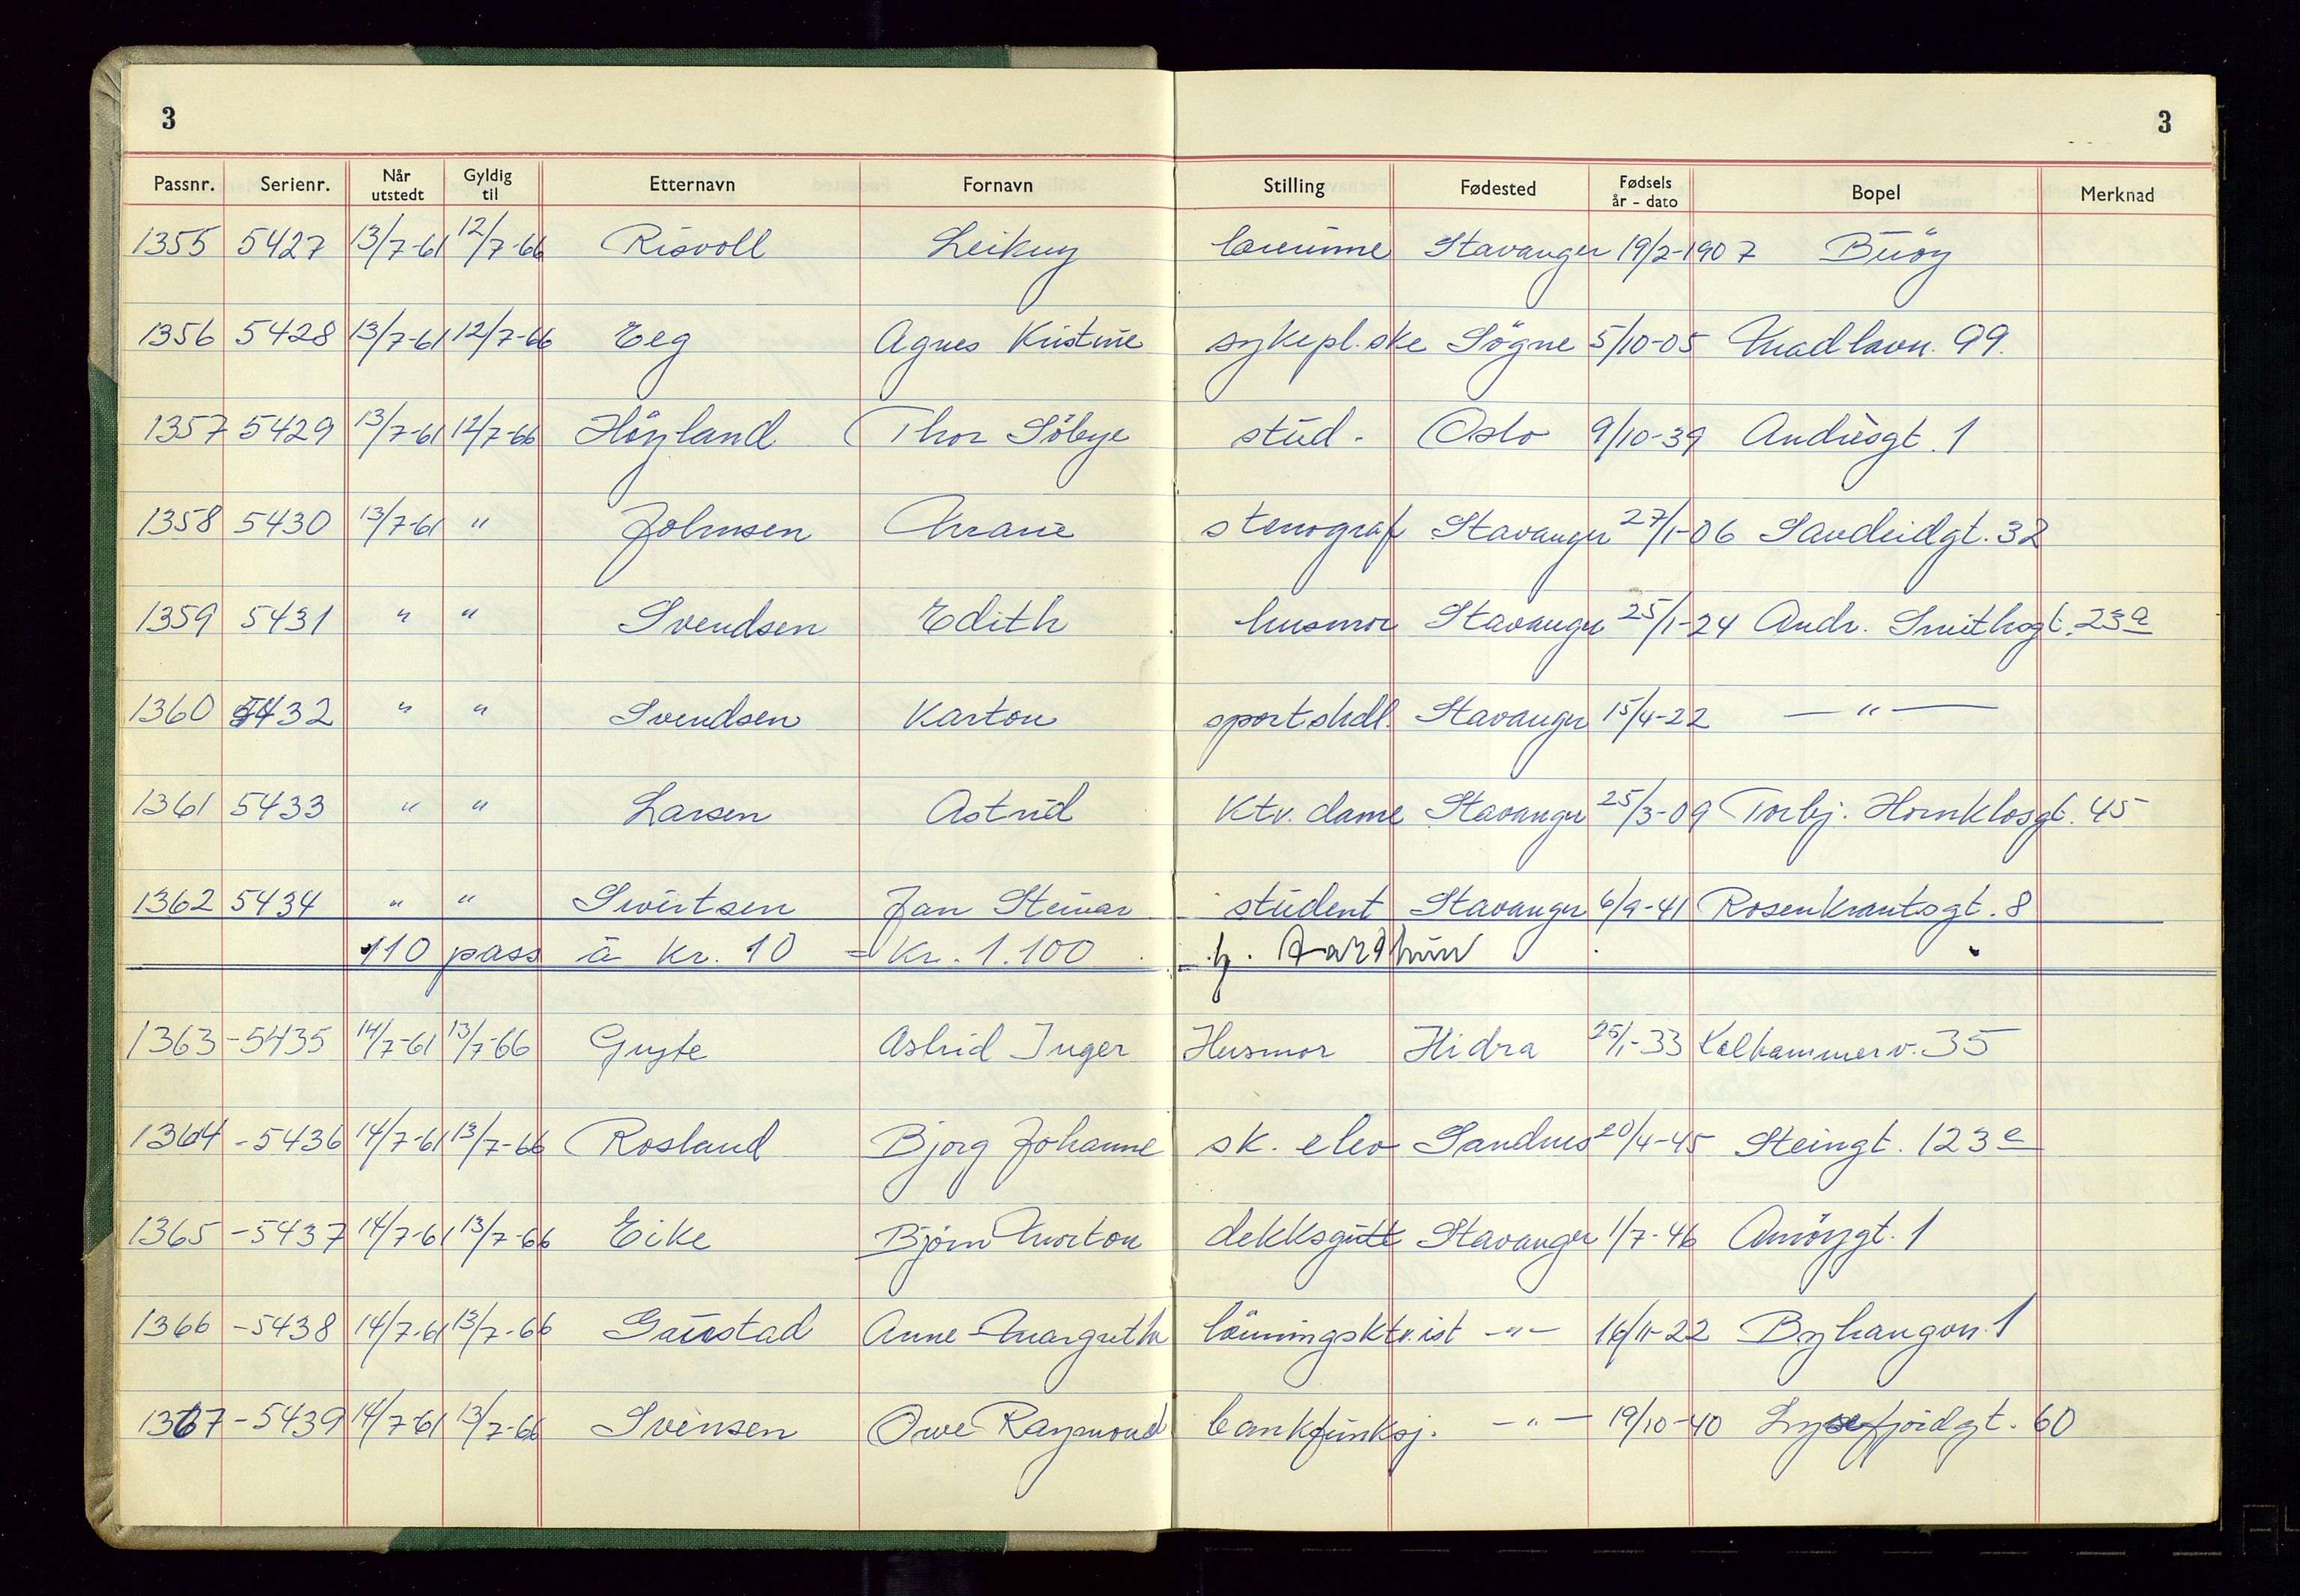 3 3
Passnr. Serienr. Når utstedt Gyldig til Etternavn Fornavn Stilling Fødested Fødsels år - dato Bopel Merknad
1355 5427 13/7-61 12/7-66 Risvoll Leikny Stavanger 19/2-1907 Buöy
1356 5428 13/7-61 12/7-66 Eeg Agnes Kristine sykepl.ske Sögne 5/10-05 Madlavn. 99.
1357 5429 13/7-61 12/7-66 Höyland Thor Söbye stud. Oslo 9/10-39 Andrèsgt. 1
1358 5430 13/7-61 " Johnsen Marie stenograf Stavanger 27/1-06 Sandeidgt. 32
1359 5431 " " Svendsen Edith husmor Stavanger 25/1-24 Andr. Smithsgt. 23a
1360 5432 " " Svendsen Karton sportshdl. Stavanger 15/4-22 — " —
1361 5433 " " Larsen Astrid Ktr. dame Stavanger 25/3-09 Torbj. Hornklosgt. 45
1362 5434 " " Sivertsen Jan Steinar student Stavanger 6/9-41 Rosenkrantsgt. 8
110 pass à Kr. 10 = Kr. 1.100
1363 - 5435 14/7-61 13/7-66 Gryte Astrid Inger Husmor Hidra 25/1-33 Kalhammerv. 35
1364 - 5436 14/7-61 13/7-66 Rosland Bjorg Johanne sk. elev Sandnes 20/4-45 Steingt. 123c
1365 - 5437 14/7-61 13/7-66 Eike Bjørn Morton dekksgutt Stavanger 1/7-46 Amöygt. 1
1366 - 5438 14/7-61 13/7-66 Gaustad Anne-Margreth lönningsktr.ist -"- 16/11-22 Byhaugvn. 1
1367 - 5439 14/7-61 13/7-66 Svensen Owe Raymond bankfunksj. - " - 19/10-40 Lysefjordgt. 60